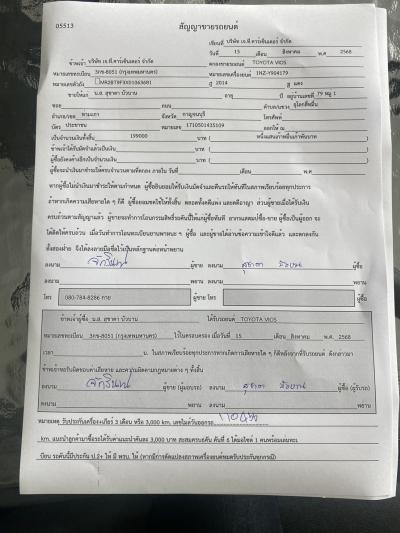 05513
สัญญาขายรถยนต์
เขียนที่ บริษัท เอ.ที.คาร์เซ็นเตอร์ จำกัด
วันที่ 15 เดือน สิงหาคม พ.ศ 2568
ข้าพเจ้า บริษัท เอ.ที.คาร์เซ็นเตอร์ จำกัด ตกลงขายรถยนต์ TOYOTA VIOS
หมายเลขทะเบียน 3กช-8051 (กรุงเทพมหานคร) หมายเลขเครื่องยนต์ 1NZ-Y904179
หมายเลขตัวถัง ปี 2014 สี แดง
ขายให้แก่ น.ส. สุชาดา บัวบาน อายุ ปี อยู่บ้านเลขที่ 79 หมู่ 1
ซอย ถนน ตำบล/แขวง
อำเภอ/เขต พนมทวน จังหวัด กาญจนบุรี โทรศัพท์
บัตร ประชาชน หมายเลข 1710501435109 ออกให้ ณ
เป็นจำนวนเงินทั้งสิ้น 159000 บาท ( หนึ่งแสนห้าหมื่นเก้าพันบาท
ข้าพเจ้าได้รับมัดจำแล้วเป็นเงิน บาท (
ผู้ซื้อยังคงค้างอีกเป็นจำนวนเงิน บาท (
ผู้ซื้อจะนำเงินมาชำระให้ครบจำนวนตามที่ตกลง ภายใน วันที่ เดือน พ.ศ
หากผู้ซื้อไม่นำเงินมาชำระให้ตามกำหนด ผู้ซื้อยินยอมให้ริบเงินมัดจำและคืนรถให้ทันทีในสภาพเรียบร้อยทุกประการ
ถ้าหากเกิดความเสียหายใด ๆ ก็ดี ผู้ซื้อยอมชดใช้ให้ทั้งสิ้น ตลอดทั้งคดีแพ่ง และคดีอาญา ส่วนผู้ขายเมื่อได้รับเงิน
ครบถ้วนตามสัญญาแล้ว ผู้ขายจะทำการโอนกรรมสิทธิ์รถคันนี้ให้แก่ผู้ซื้อทันที
ได้คิดให้ครบถ้วน เมื่อวันทำการโอนทะเบียนยานพาหนะ ฯ ผู้ซื้อ และผู้ขายได้อ่านข้อความเข้าใจดีแล้ว และตกลงกัน
ทั้งสองฝ่าย จึงได้ลงลายมือชื่อไว้เป็นหลักฐานต่อหน้าพยาน
ลงนาม ผู้ขาย ลงนาม สุชาดา บัวบาน ผู้ซื้อ
ลงนาม พยาน ลงนาม พยาน
โทร 080-784-8286 กาย ผู้ขาย โทร ผู้ซื้อ
ข้าพเจ้าผู้ซื้อ น.ส. สุชาดา บัวบาน ได้รับรถยนต์ TOYOTA VIOS
หมายเลขทะเบียน 3กช-8051 (กรุงเทพมหานคร) ไว้ในครอบครอง เมื่อวันที่ 15 เดือน สิงหาคม พ.ศ 2568
เวลา น. ในสภาพเรียบร้อยทุกประการหากเกิดความเสียหายใด ๆ ก็ดีหลังจากที่รับรถยนต์ ดังกล่าวมา
ข้าพเจ้าขอรับผิดชอบค่าเสียหาย และความผิดตามกฎหมายต่าง ๆ ทั้งสิ้น
ลงนาม ผู้ขาย (ผู้มอบรถ) ลงนาม สุชาดา บัวบาน ผู้ซื้อ (ผู้รับรถ)
ลงนาม พยาน ลงนาม พยาน
หมายเหตุ รับประกันเครื่อง+เกียร์ 3 เดือน หรือ 3,000 km. เลขไมล์วันออกรถ
km. แนะนำลูกค้ามาซื้อรถได้รับค่าแนะนำคันละ 3,000 บาท สะสมครบ6คัน คันที่ 6 ได้มอไซค์ 1 คันพร้อมเล่มทะเ
บียน รถคันนี้มีประกัน ป.2+ ให้ มี พรบ. ให้ (หากมีการดัดแปลงสภาพเครื่องยนต์หมดรับประกันทุกกรณี)